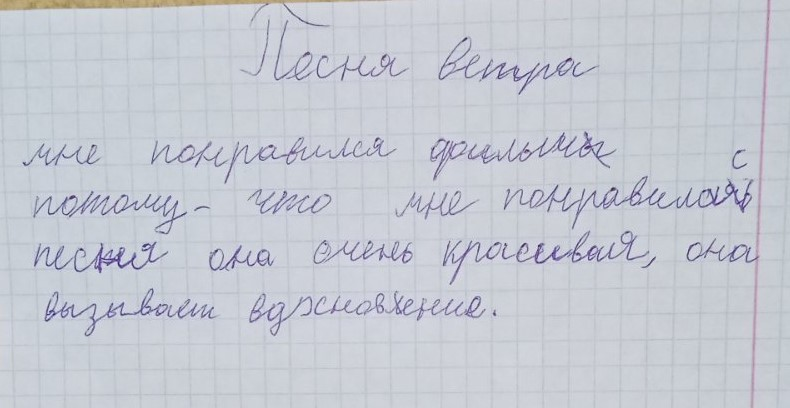 Песня ветра
мне понравился фильм
потому - что мне понравилась
песня она очень красивая, она
вызывает вдохновение.